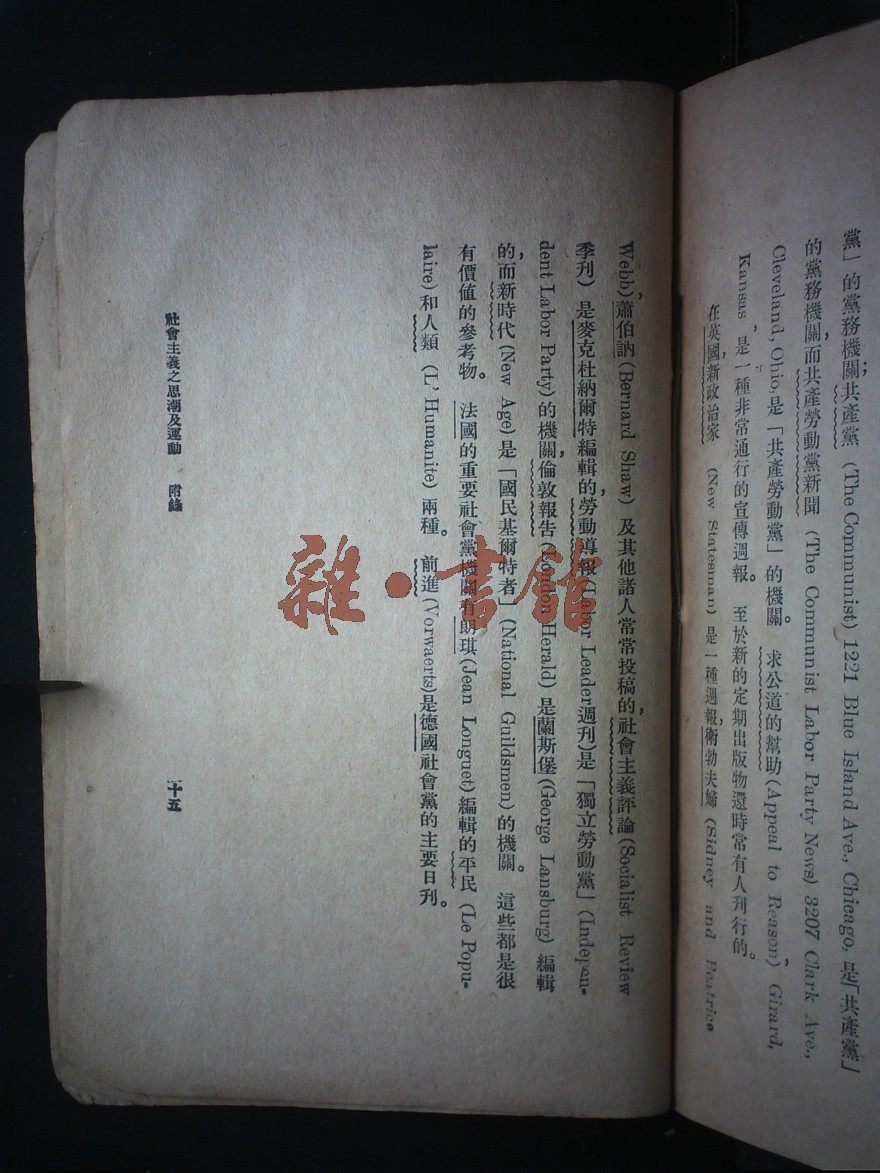 黨」的黨務機關；共產黨 (The Communist) 1221 Blue Island Ave., Chicago, 是「共產黨」
的黨務機關，而共產勞動黨新聞 (The Communist Labor Party News) 3207 Clark Ave.,
Cleveland, Ohio, 是「共產勞動黨」的機關。求公道的幫助 (Appeal to Reason) Girard,
Kansas, 是一種非常通行的宣傳週報。至於新的定期出版物還時常有人刊行的。
在英國，新政治家 (New Statesman) 是一種週報，衛勃夫婦 (Sidney and Beatrice
Webb) 蕭伯訥 (Bernard Shaw) 及其他諸人常常投稿的，社會主義評論 (Socialist Review
季刊) 是麥克杜納爾特編輯的，勞動導報 (Labor Leader週刊) 是「獨立勞動黨」(Indepen-
dent Labor Party) 的機關，倫敦報告 (London Herald) 是蘭斯堡 (George Lansburg) 編輯
的，而新時代 (New Age) 是「國民基爾特者」(National Guildsmen) 的機關。這些都是很
有價值的參考物。法國的重要社會黨機關有朗琪 (Jean Longuet) 編輯的平民 (Le Popu-
laire) 和人類 (L' Humanite) 兩種。前進 (Vorwaerts) 是德國社會黨的主要日刊。
社會主義之思潮及運動 附錄
十五
雜·書館